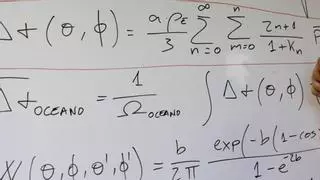 Δt(θ,φ) = a·ρE/3 ∞ Σ n=0 n Σ m=0 2n+1/1+kn P
Δt OCEANO = 1/Ω OCEANO ∫ Δt(θ,φ)
W(θ,φ,θ',φ') = b/2π exp(-b(1-cos/1-e^-2b